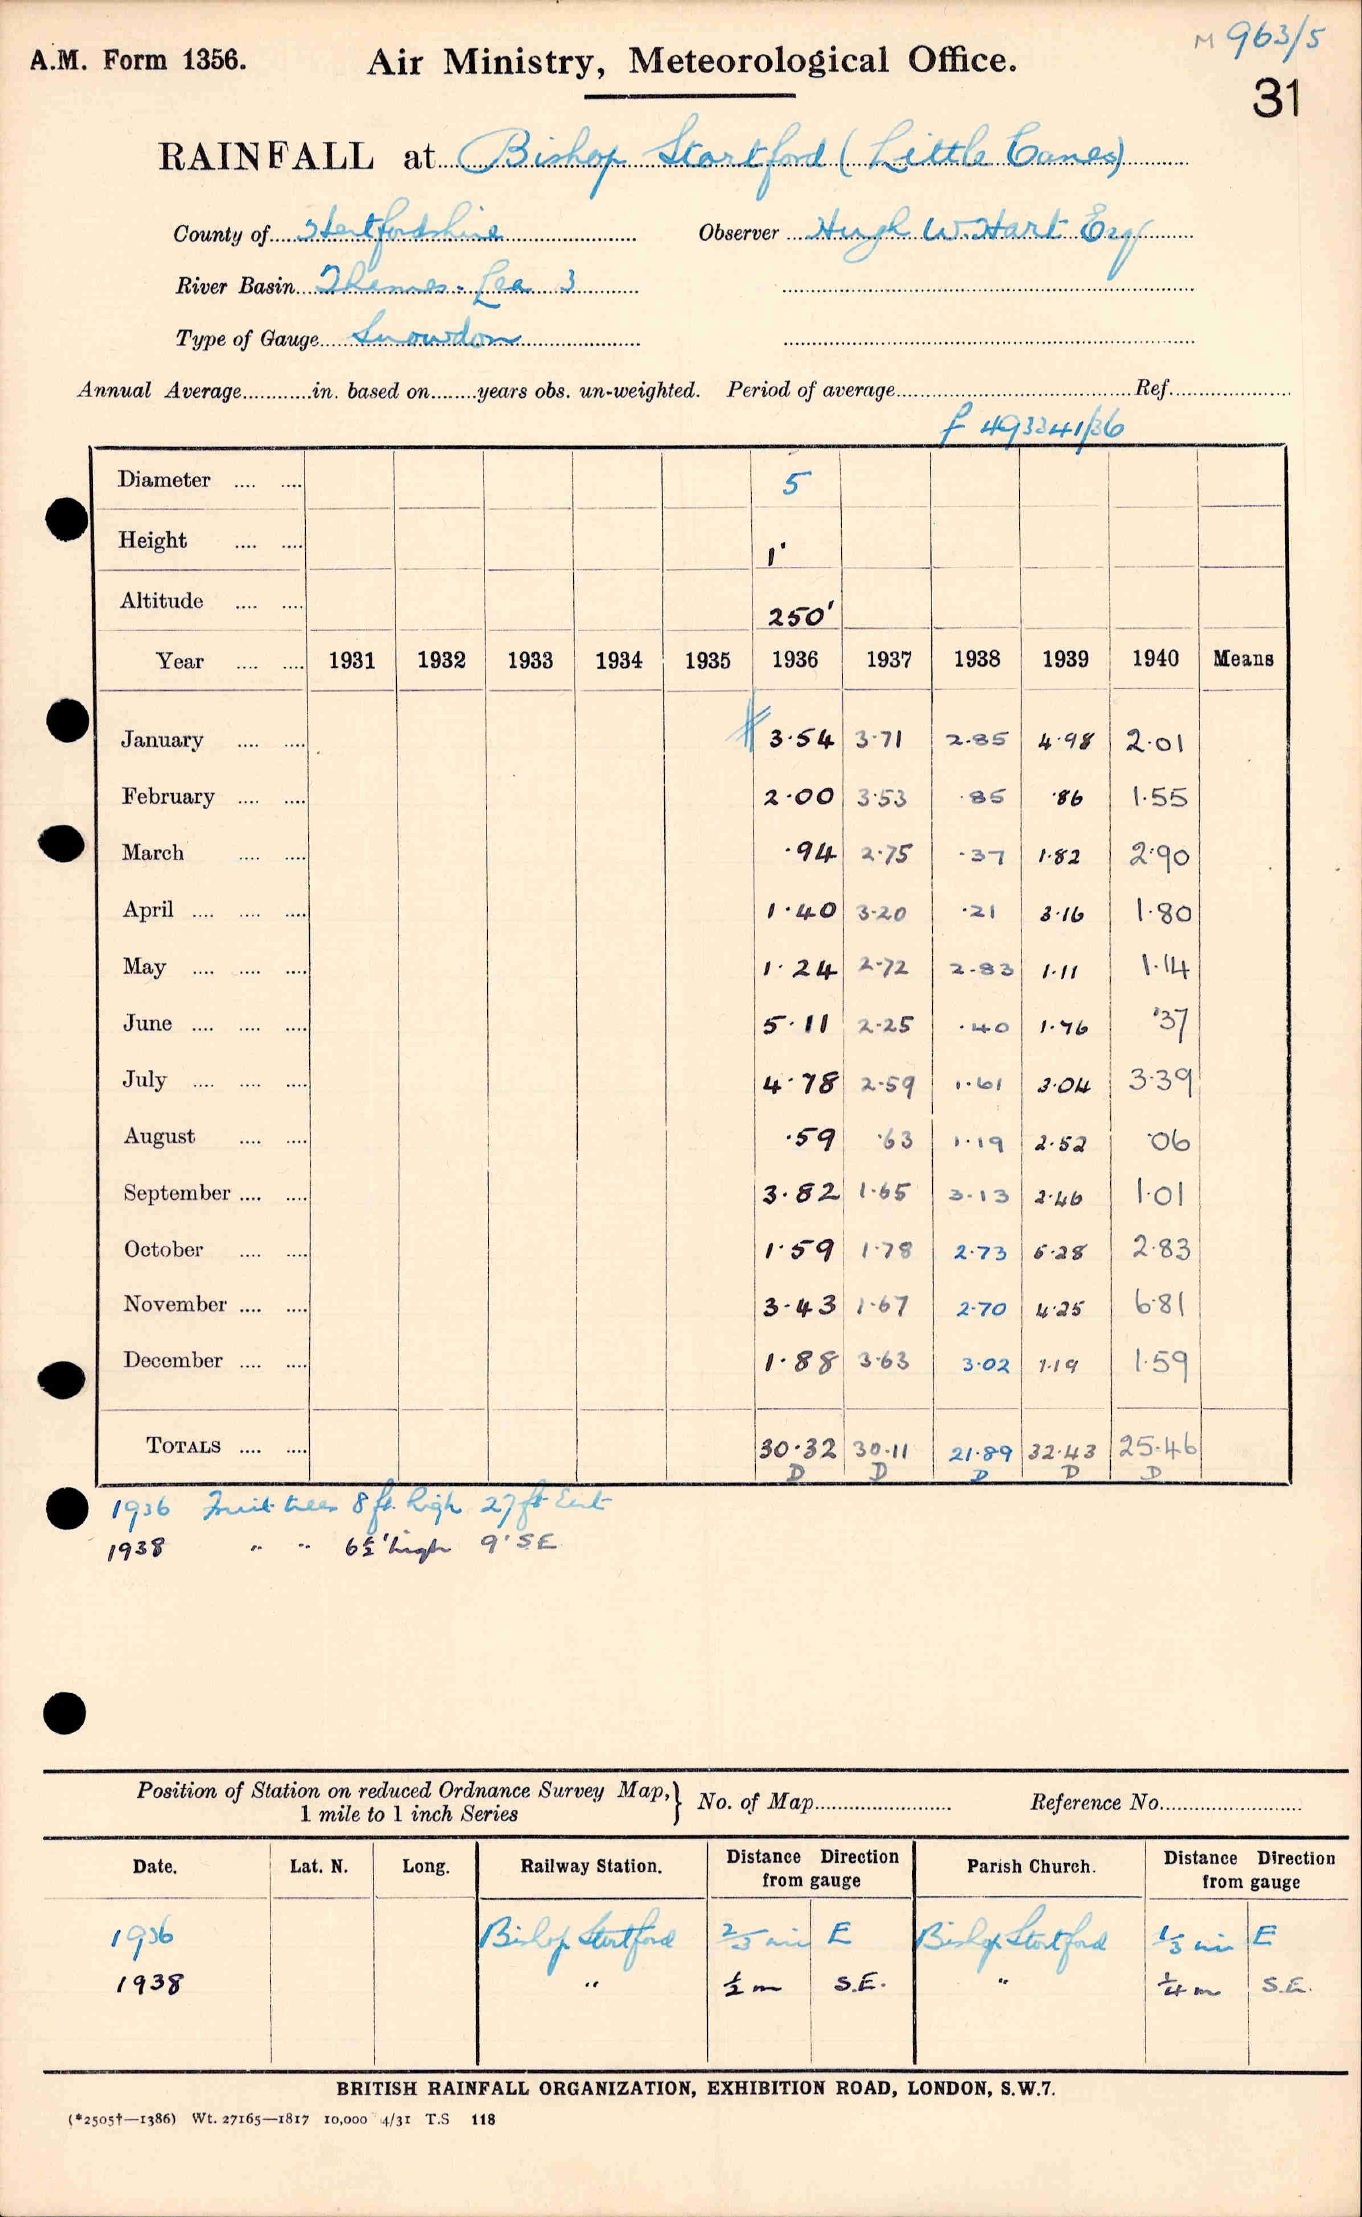 M 963/5
A.M. Form 1356. Air Ministry, Meteorological Office.
31
RAINFALL at Bishop Stortford (Little Canes)
County of Hertfordshire Observer Hugh W. Hart Esq
River Basin Thames. Lea 3
Type of Gauge Snowdon
Annual Average in. based on years obs. un-weighted. Period of average Ref.
f 493341/36
Diameter 5
Height 1'
Altitude 250'
Year 1931 1932 1933 1934 1935 1936 1937 1938 1939 1940 Means
January 3.54 3.71 2.85 4.98 2.01
February 2.00 3.53 .85 .86 1.55
March .94 2.75 .37 1.82 2.90
April 1.40 3.20 .21 3.16 1.80
May 1.24 2.72 2.83 1.11 1.14
June 5.11 2.25 .40 1.76 .37
July 4.78 2.59 1.61 3.04 3.39
August .59 .63 1.19 2.52 .06
September 3.82 1.65 3.13 2.46 1.01
October 1.59 1.78 2.73 5.28 2.83
November 3.43 1.67 2.70 4.25 6.81
December 1.88 3.63 3.02 1.19 1.59
TOTALS 30.32 30.11 21.89 32.43 25.46
D D D D D
1936 Fruit trees 8 ft. high 27 ft East
1938 " " 6½' high 9' S.E
Position of Station on reduced Ordnance Survey Map, 1 mile to 1 inch Series } No. of Map Reference No.
Date. Lat. N. Long. Railway Station. Distance Direction from gauge Parish Church. Distance Direction from gauge
1936 Bishop Stortford 2/3 mi E Bishop Stortford 1/3 mi E
1938 " ½ m S.E. " ¼ m S.E.
BRITISH RAINFALL ORGANIZATION, EXHIBITION ROAD, LONDON, S.W.7.
(*2505†—1386) Wt. 27165—1817 10,000 4/31 T.S 118